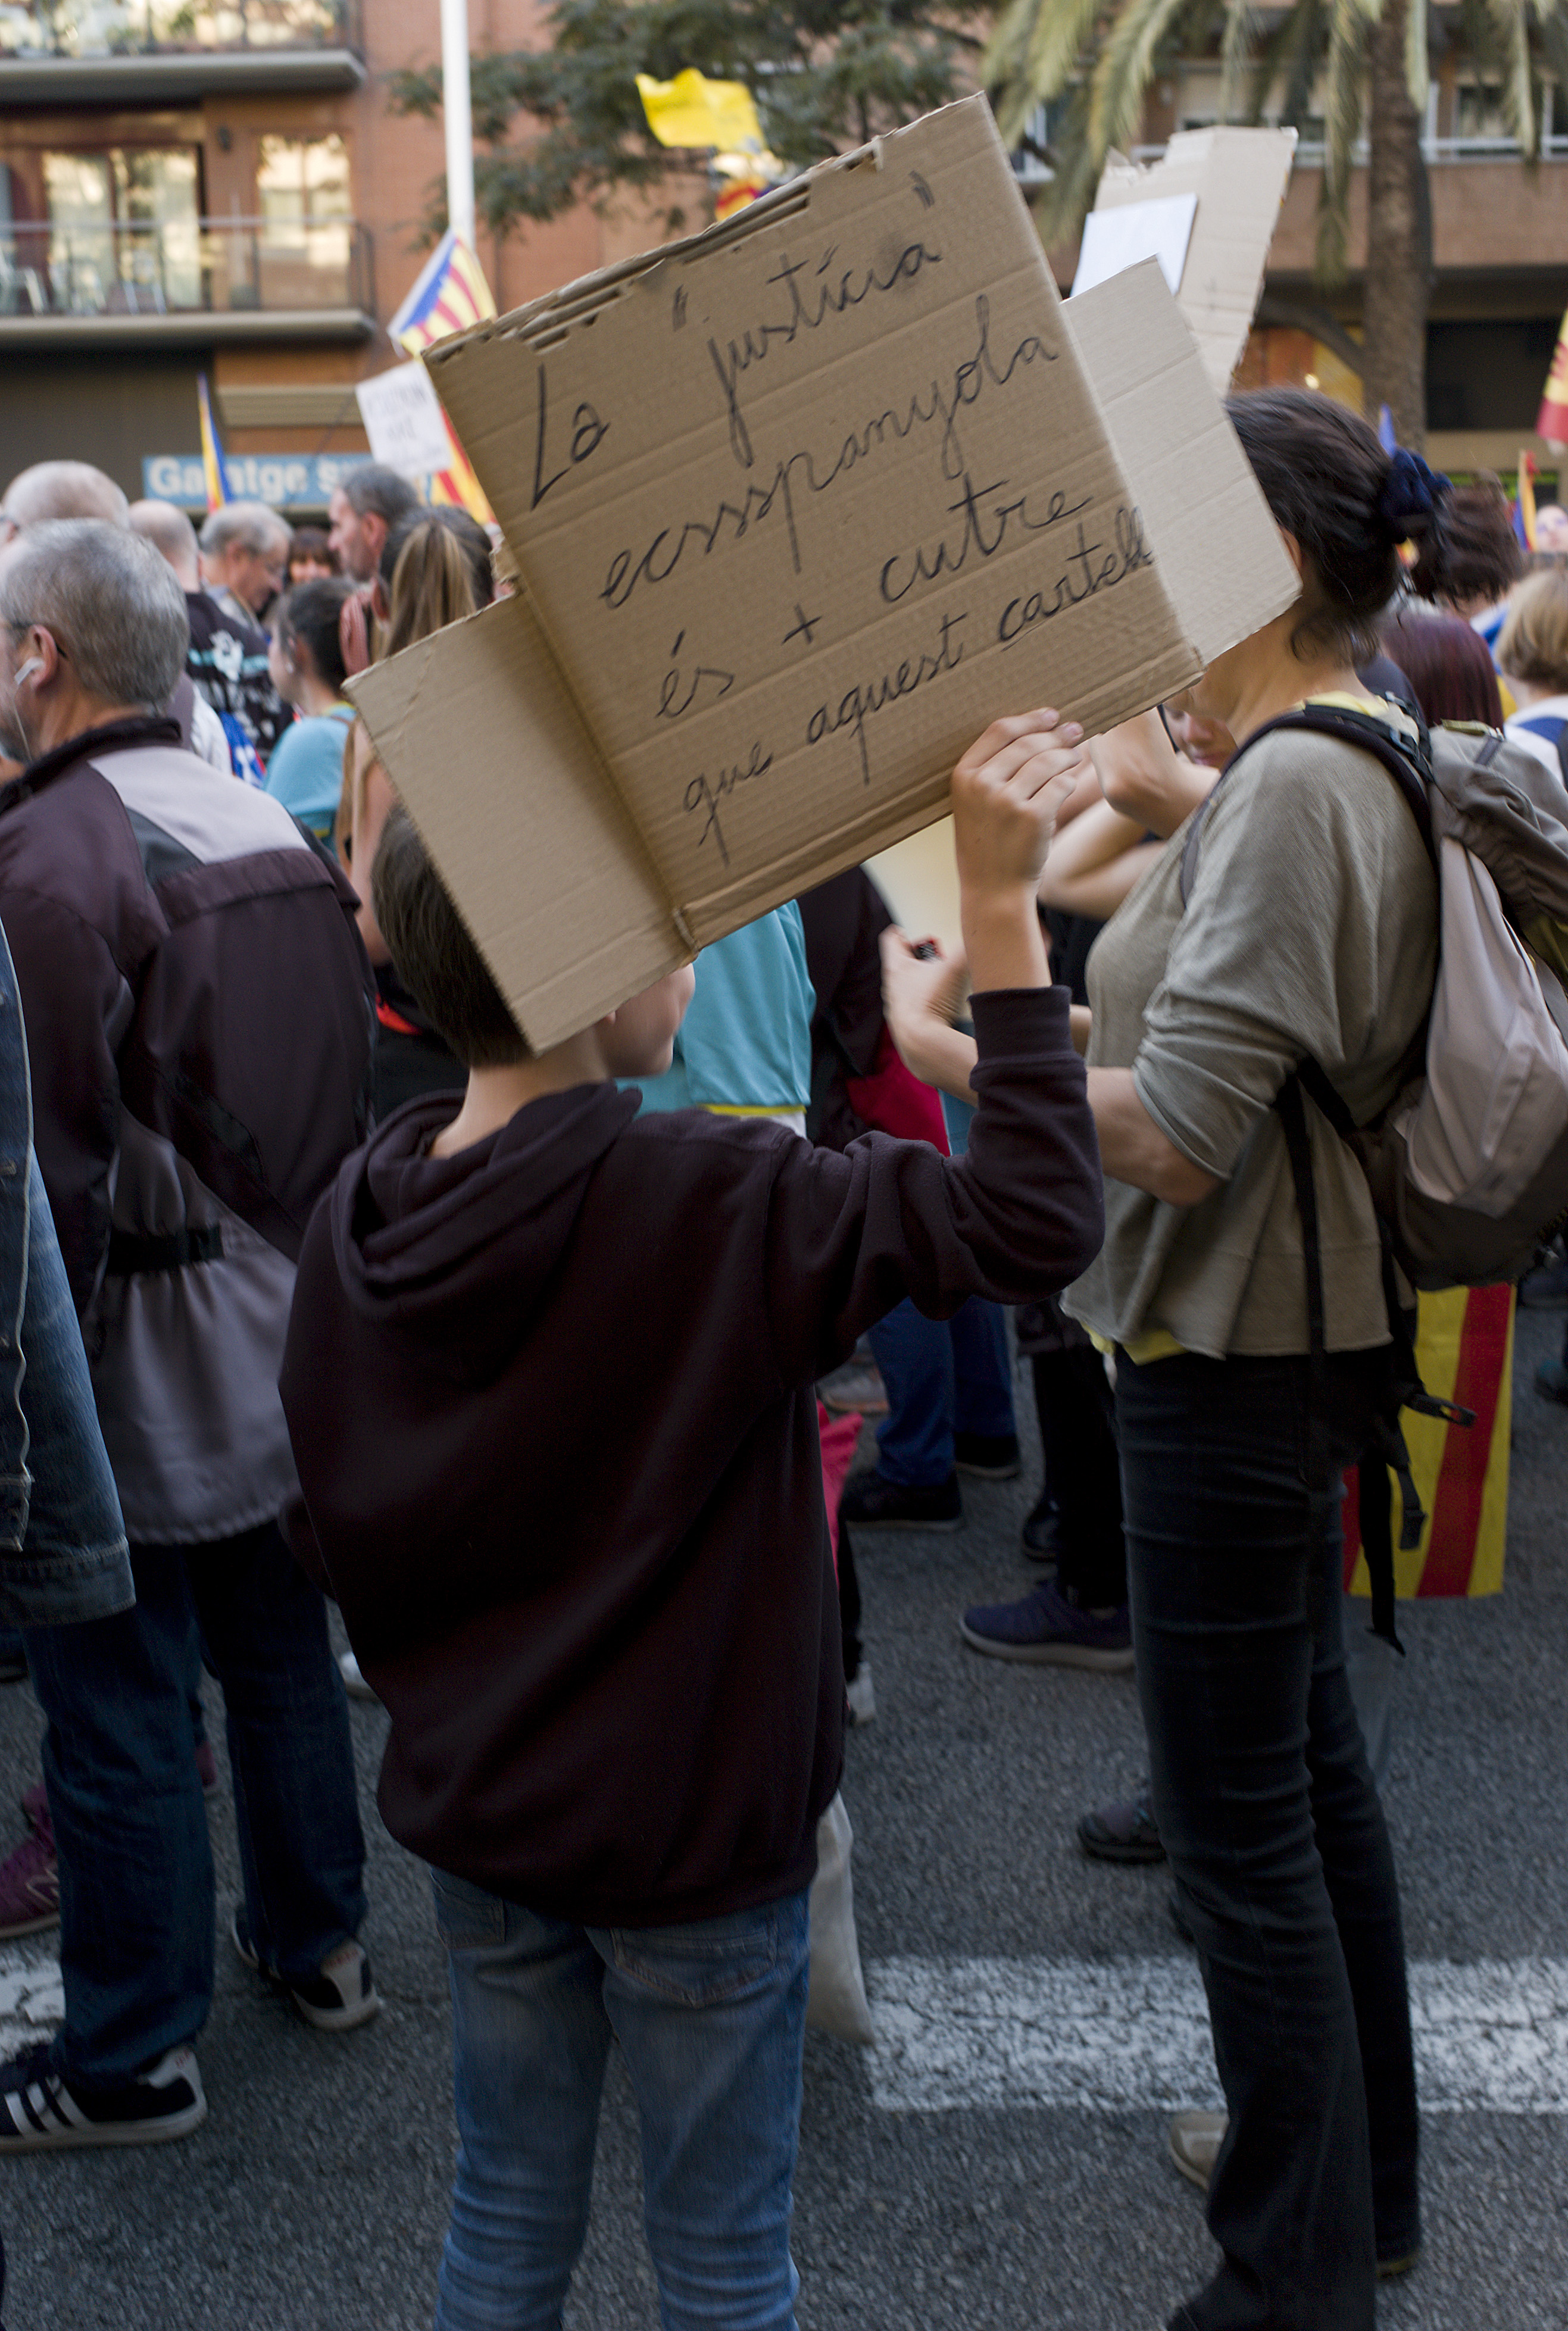 La "justícia"
ecssspanyola
és + cutre
que aquest cartell